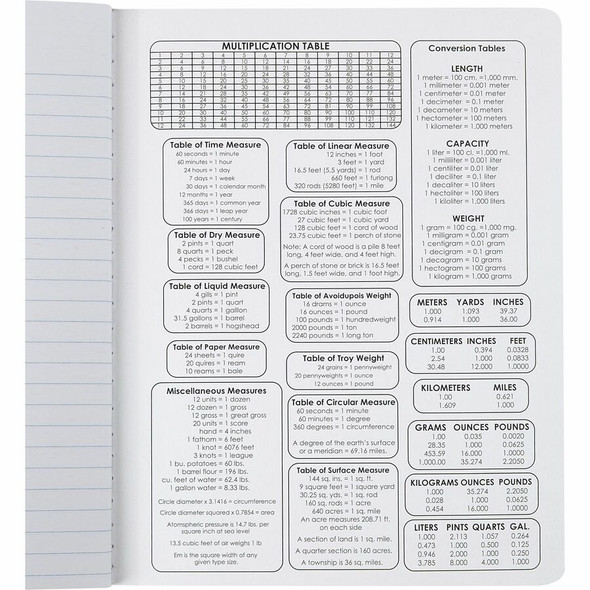 MULTIPLICATION TABLE
1 2 3 4 5 6 7 8 9 10 11 12
2 4 6 8 10 12 14 16 18 20 22 24
3 6 9 12 15 18 21 24 27 30 33 36
4 8 12 16 20 24 28 32 36 40 44 48
5 10 15 20 25 30 35 40 45 50 55 60
6 12 18 24 30 36 42 48 54 60 66 72
7 14 21 28 35 42 49 56 63 70 77 84
8 16 24 32 40 48 56 64 72 80 88 96
9 18 27 36 45 54 63 72 81 90 99 108
10 20 30 40 50 60 70 80 90 100 110 120
11 22 33 44 55 66 77 88 99 110 121 132
12 24 36 48 60 72 84 96 108 120 132 144
Table of Time Measure
60 seconds = 1 minute
60 minutes = 1 hour
24 hours = 1 day
7 days = 1 week
30 days = 1 calendar month
12 months = 1 year
365 days = 1 common year
366 days = 1 leap year
100 years = 1 century
Table of Dry Measure
2 pints = 1 quart
8 quarts = 1 peck
4 pecks = 1 bushel
1 cord = 128 cubic feet
Table of Liquid Measure
4 gils = 1 pint
2 pints = 1 quart
4 quarts = 1 gallon
31.5 gallons = 1 barrel
2 barrels = 1 hogshead
Table of Paper Measure
24 sheets = 1 quire
20 quires = 1 ream
10 reams = 1 bale
Miscellaneous Measures
12 units = 1 dozen
12 dozen = 1 gross
12 gross = 1 great gross
20 units = 1 score
hand = 4 inches
1 fathom = 6 feet
1 knot = 6076 feet
3 knots = 1 league
1 bu. potatoes = 60 lbs.
1 barrel flour = 196 lbs.
cu. feet of water = 62.4 lbs.
1 gallon water = 8.33 lbs.
Circle diameter x 3.1416 = circumference
Circle diameter squared x 0.7854 = area
Atomspheric pressure is 14.7 lbs. per
square inch at sea level
13.5 cubic feet of air weighs 1 lb
Em is the square width of any
given type size.
Table of Linear Measure
12 inches = 1 foot
3 feet = 1 yard
16.5 feet (5.5 yards) = 1 rod
660 feet = 1 furlong
320 rods (5280 feet) = 1 mile
Table of Cubic Measure
1728 cubic inches = 1 cubic foot
27 cubic feet = 1 cubic yard
128 cubic feet = 1 cord of wood
23.75 cubic feet = 1 perch of stone
Note: A cord of wood is a pile 8 feet
long, 4 feet wide, and 4 feet high.
A perch of stone or brick is 16.5 feet
long, 1.5 feet wide, and 1 foot high.
Table of Avoidupois Weight
16 drams = 1 ounce
16 ounces = 1 pound
100 pounds = 1 hundredweight
2000 pounds = 1 ton
2240 pounds = 1 long ton
Table of Troy Weight
24 grains = 1 pennyweight
20 pennyweights = 1 ounce
12 ounces = 1 pound
Table of Circular Measure
60 seconds = 1 minute
60 minutes = 1 degree
360 degrees = 1 circumference
A degree of the earth's surface
or a meridian = 69.16 miles.
Table of Surface Measure
144 sq. ins. = 1 sq. ft.
9 square feet = 1 square yard
30.25 sq. yds. = 1 sq. rod
160 sq. rods = 1 acre
640 acres = 1 sq. mile
An acre measures 208.71 ft.
on each side
A section of land is 1 sq. mile.
A quarter section is 160 acres.
A township is 36 sq. miles.
Conversion Tables
LENGTH
1 meter = 100 cm. =1,000 mm.
1 millimeter = 0.001 meter
1 centimeter = 0.01 meter
1 decimeter = 0.1 meter
1 decameter = 10 meters
1 hectometer = 100 meters
1 kilometer = 1,000 meters
CAPACITY
1 liter = 100 cl. =1,000 ml.
1 milliliter = 0.001 liter
1 centiliter = 0.01 liter
1 deciliter = 0.1 liter
1 decaliter = 10 liters
1 hectoliter = 100 liters
1 kiloliter = 1,000 liters
WEIGHT
1 gram = 100 cg. =1,000 mg.
1 milligram = 0.001 gram
1 centigram = 0.01 gram
1 decigram = 0.1 gram
1 decagram = 10 grams
1 hectogram = 100 grams
1 kilogram = 1,000 grams
METERS YARDS INCHES
1.000 1.093 39.37
0.914 1.000 36.00
CENTIMETERS INCHES FEET
1.00 0.394 0.0328
2.54 1.000 0.0833
30.48 12.000 1.0000
KILOMETERS MILES
1.00 0.621
1.609 1.000
GRAMS OUNCES POUNDS
1.00 0.035 0.0020
28.35 1.000 0.0625
453.59 16.000 1.0000
1,000.00 35.274 2.2050
KILOGRAMS OUNCES POUNDS
1.000 35.274 2.2050
0.028 1.000 0.0625
0.454 16.000 1.0000
LITERS PINTS QUARTS GAL.
1.000 2.113 1.057 0.264
0.473 1.000 0.500 0.125
0.946 2.000 1.000 0.250
3.785 8.000 4.000 1.000